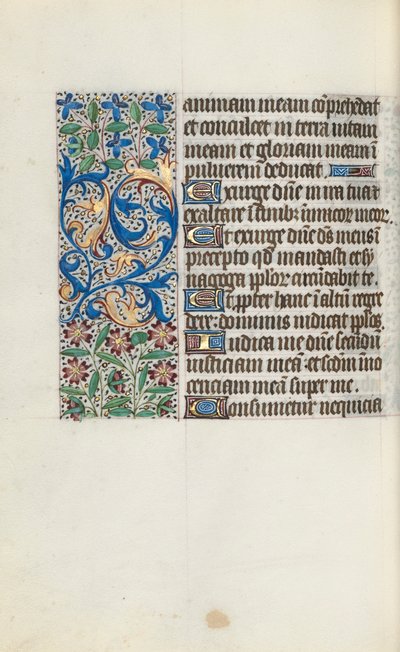 animam meam cõprehẽdat
et conculcet in terra uitam
meam et gloriam meam ĩ
puluerem deducat
Exurge dñe in ira tua et
exaltare ĩ finib⁹ inimicor meor.
Et exurge dñe dẽs meus ĩ
precepto qd mandasti et sy
nagoga pplor circũdabit te.
Et ppter hanc ĩ altũ regre
dere dominus iudicat pplos.
Iudica me dñe secundũ
iusticiam meã et scdm ĩno
cenciam meã super me.
Consumetur nequicia